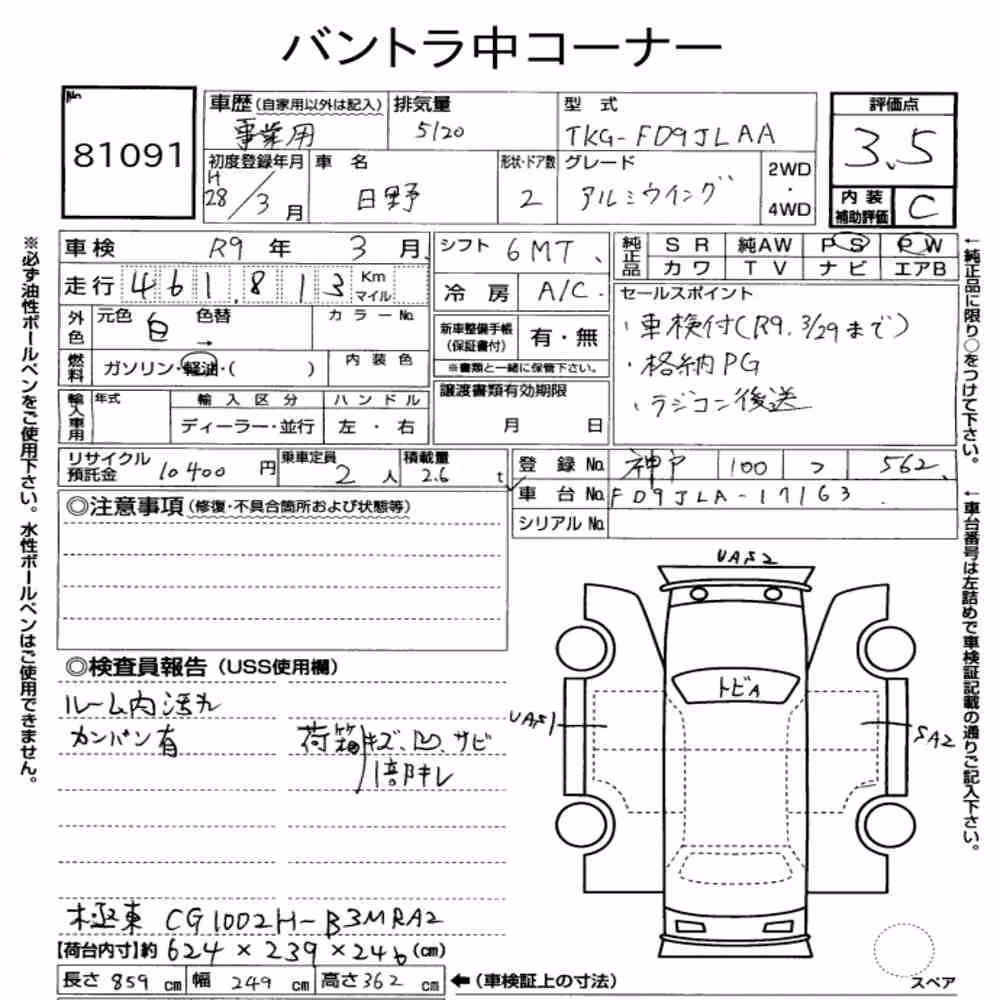 バントラ中コーナー
No
81091
車歴（自家用以外は記入） 排気量 型 式 評価点
事業用 5120 TKG-FD9JLAA 3.5
初度登録年月 車 名 形状・ドア数 グレード 2WD・4WD 内装補助評価
H28/3月 日野 2 アルミウイング C
車検 R9年 3月 シフト 6MT 純正品 SR 純AW PS PW
カワ TV ナビ エアB
走行 461,813 Km マイル 冷房 A/C
外色 元色 白 色替 → カラーNo.
新車整備手帳（保証書付） 有・無
※書類と一緒に保管下さい。
セールスポイント
・車検付（R9.3/29まで）
・格納PG
・ラジコン後送
燃料 ガソリン・軽油・（ ） 内装色
譲渡書類有効期限
月 日
輸入車用 年式 輸入区分 ハンドル
ディーラー・並行 左・右
リサイクル預託金 10400円 乗車定員 2人 積載量 2.6t
登録No. 神戸 100 562
車台No. FD9JLA-17163
シリアルNo.
◎注意事項（修復・不具合箇所および状態等）
◎検査員報告（USS使用欄）
ルーム内汚れ
カンバン有
荷箱キズ、凹、サビ
1部キレ
極東 CG1002H-B3MRA2
【荷台内寸】約 624×239×246（cm）
長さ 859 cm 幅 249 cm 高さ 362 cm ←（車検証上の寸法）
UA52
トビA
UA51
SA2
スペア
※必ず油性ボールペンをご使用下さい。水性ボールペンはご使用できません。
←純正品に限り○をつけて下さい。
←車台番号は左詰めで車検証記載の通りご記入下さい。